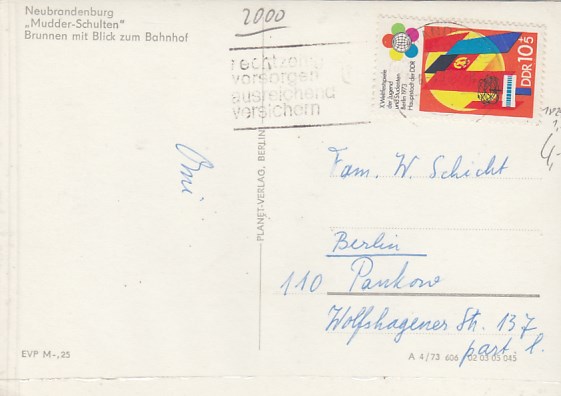 Neubrandenburg
„Mudder-Schulten"
Brunnen mit Blick zum Bahnhof
2000
rechtzeitig
vorsorgen
ausreichend
versichern
X. Weltfestspiele
der Jugend
und Studenten
Berlin 1973
Hauptstadt der DDR
DDR 10+5
PLANET-VERLAG, BERLIN
Fam. W. Schicht
Berlin
110 Pankow
Wolfshagener Str. 137
part. l.
EVP M-,25
A 4/73 606 02 03 05 045